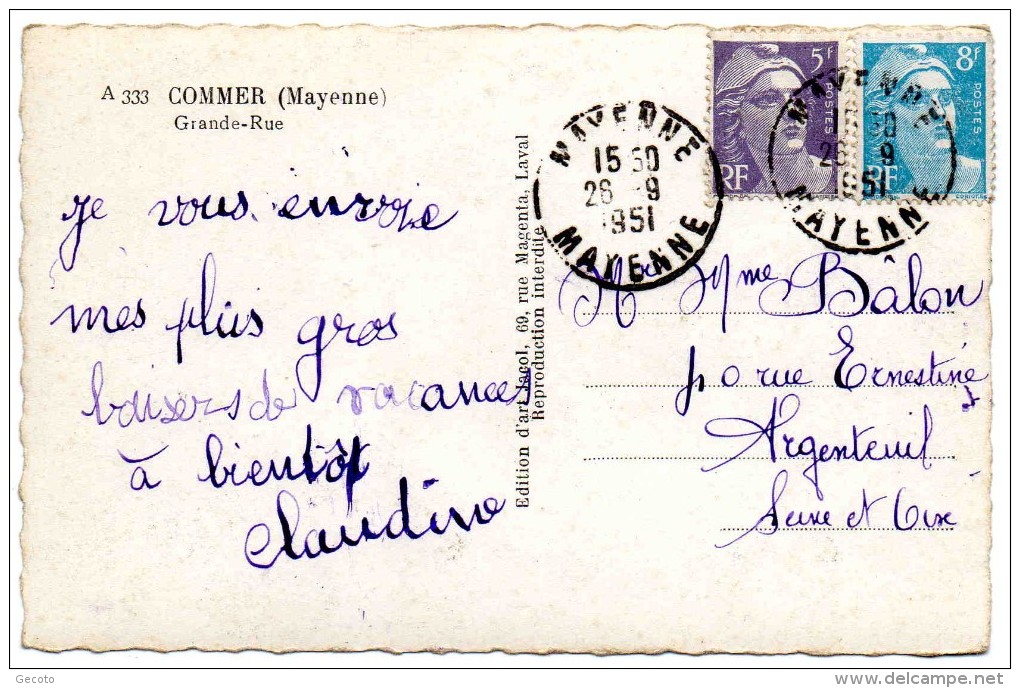 A 333 COMMER (Mayenne)
Grande-Rue
je vous envoie
mes plus gros
baisers de vacances
à bientôt
Claudine
Edition d'art Jacol, 69, rue Magenta, Laval
Reproduction interdite
MAYENNE
15 30
26 -9
1951
MAYENNE
5f
POSTES
RF
8f
POSTES
RF
MAYENNE
26 -9
1951
MAYENNE
Mr Mme Bâlon
rue Ernestine
Argenteuil
Seine et Oise
Gecoto
www.delcampe.net